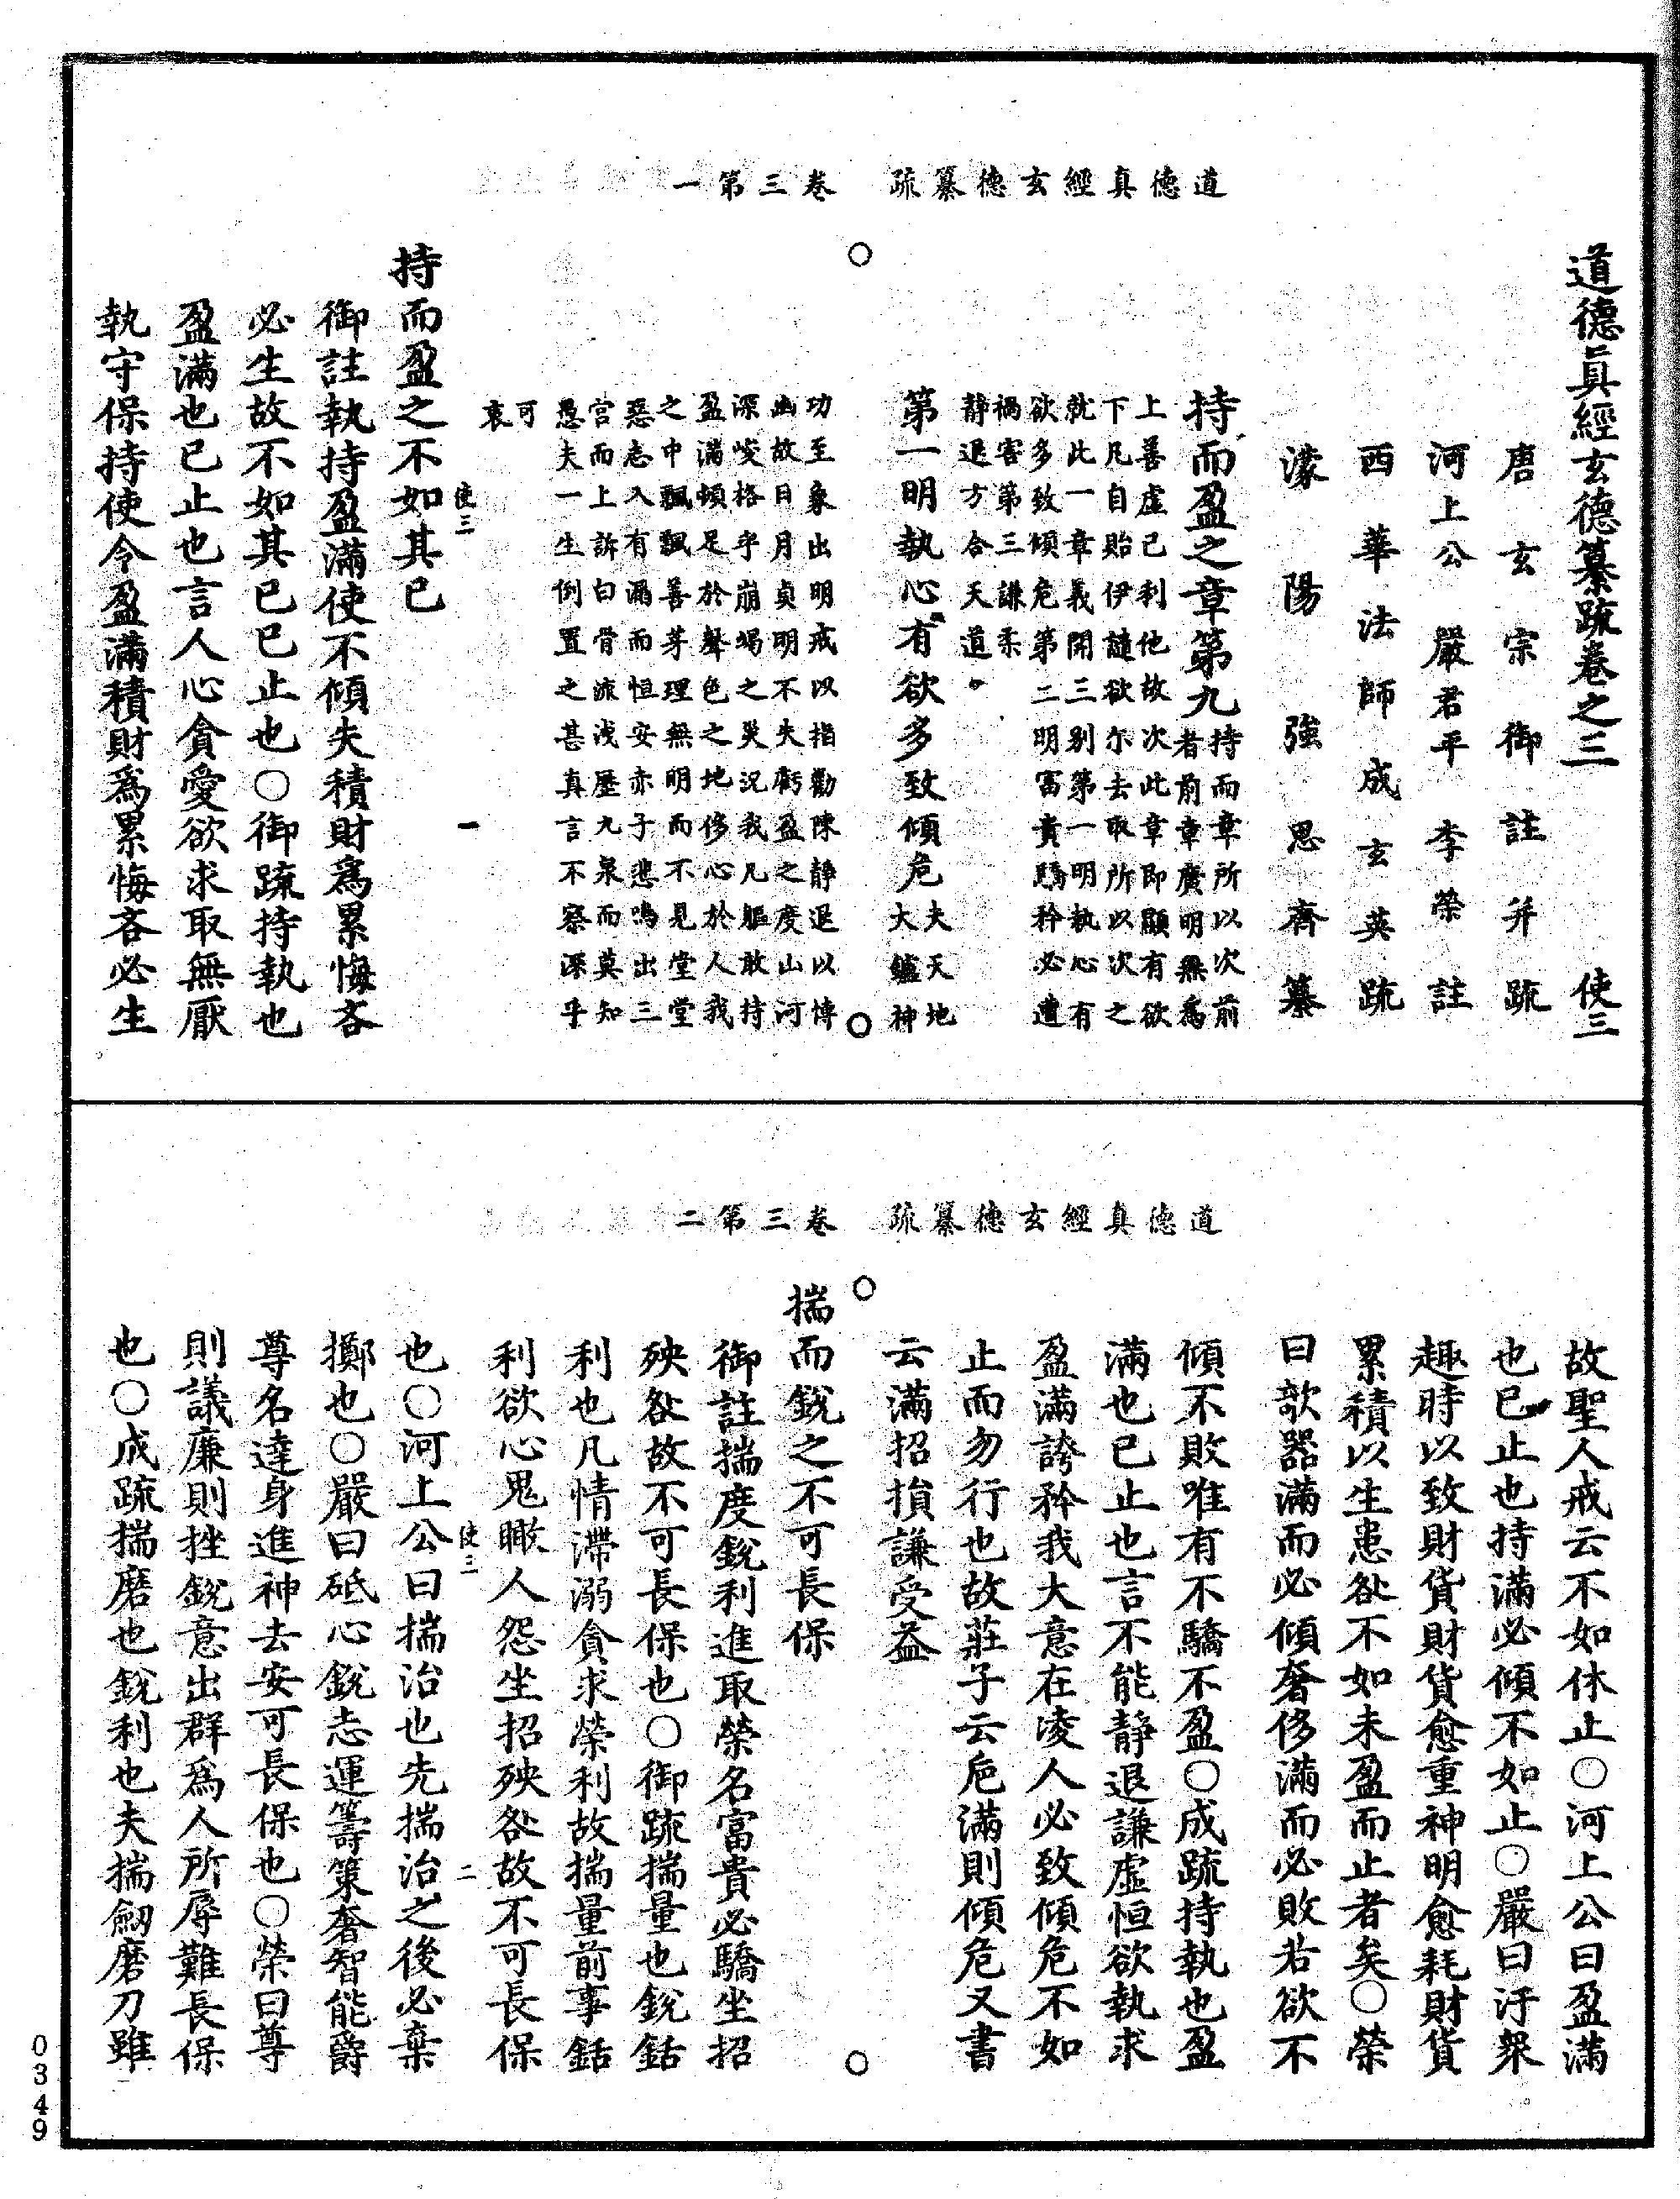 道德真經玄德纂疏　卷三第一
道德真經玄德纂疏卷之三　使三
唐玄宗御註并疏
河上公嚴君平李榮註
西華法師成玄英疏
濛陽強思齊纂
持而盈之章第九持而章所以次前
者前章廣明無為
上善虛己利他故次此章即顯有欲
下凡自貽伊譴欲尔去取所以次之
就此一章義開三别第一明執心有
欲多致傾危第二明富貴驕矜必遭
禍害第三謙柔
靜退方合天道
第一明執心有欲多致傾危夫天地
大鑪神
功至象出明戒以指勸陳靜退以博
幽故日月貞明不失虧盈之度山河
深峻格乎崩竭之災況我凡軀敢持
盈滿頓足於聲色之地侈心於人我
之中飄飄善芽理無明而不見堂堂
惡志入有漏而恒安亦子悲鳴出三
宫而上訴白骨流浅歷九泉而莫知
愚夫一生倒置之甚真言不察深乎
可
哀
使三　一
持而盈之不如其已
御註執持盈滿使不傾失積財爲累悔吝
必生故不如其已已止也〇御疏持執也
盈滿也已止也言人心貪愛欲求取無厭
執守保持使令盈滿積財爲累悔吝必生
道德真經玄德纂疏　卷三第二
故聖人戒云不如休止〇河上公曰盈滿
也已止也持滿必傾不如止〇嚴曰汙衆
趣時以致財貨財貨愈重神明愈耗財貨
累積以生患咎不如未盈而止者矣〇榮
曰欹器滿而必傾奢侈滿而必敗若欲不
傾不敗唯有不驕不盈〇成疏持執也盈
滿也已止也言不能靜退謙虛恒欲執求
盈滿誇矜我大意在凌人必致傾危不如
止而勿行也故莊子云巵滿則傾危又書
云滿招損謙受益
揣而銳之不可長保
御註揣度銳利進取榮名富貴必驕坐招
殃咎故不可長保也〇御疏揣量也銳銛
利也凡情滯溺貪求榮利故揣量前事銛
利欲心鬼瞰人怨坐招殃咎故不可長保
使三　二
也〇河上公曰揣治也先揣治之後必棄
擲也〇嚴曰砥心銳志運籌策奢智能爵
尊名達身進神去安可長保也〇榮曰尊
則議廉則挫銳意出群爲人所辱難長保
也〇成疏揣磨也銳利也夫揣劒磨刀雖
0349